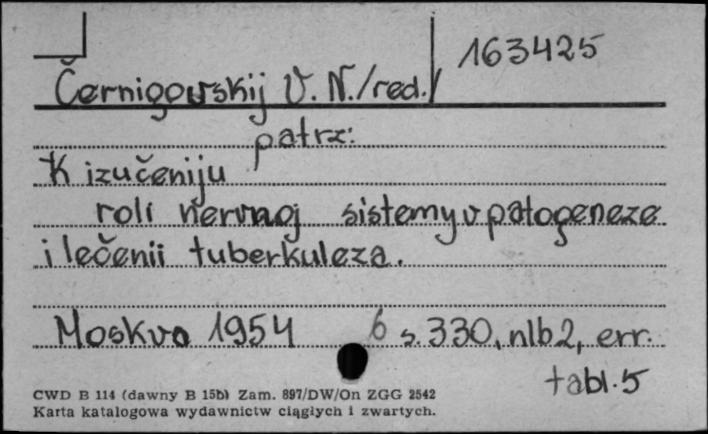 163425
Černigovskij V. N./red./
patrz:
K izučeniju
roli nervnoj sistemy v patogeneze
i lečenii tuberkuleza.
Moskva 1954 6 s. 330, nlb 2, err.
tabl. 5
CWD B 114 (dawny B 15b) Zam. 897/DW/On ZGG 2542
Karta katalogowa wydawnictw ciągłych i zwartych.